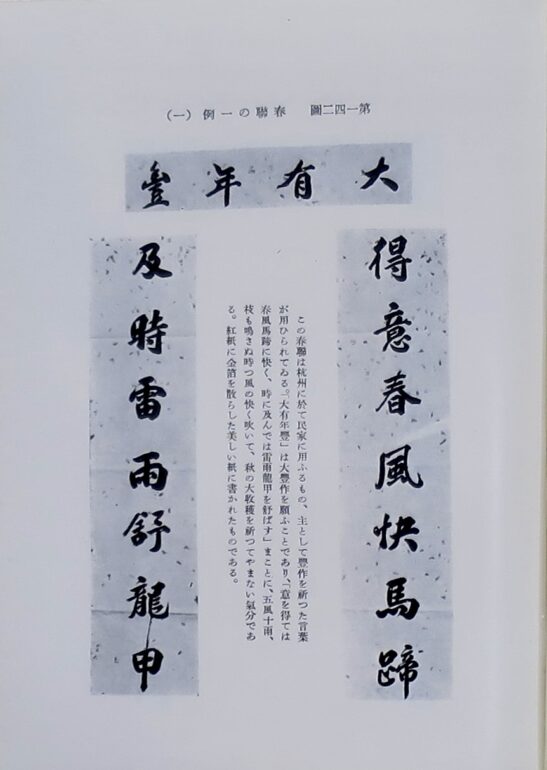 第一四二圖　春聯の一例（一）
大有年豊
得意春風快馬蹄
この春聯は杭州に於て民家に用ふるもの、主として豊作を祈つた言葉
が用ひられてゐる。「大有年豊」は大豊作を願ふことであり、「意を得ては
春風馬蹄に快く、時に及んでは雷雨龍甲を舒ばす」まことに、五風十雨、
枝も鳴さぬ時つ風の快く吹いて、秋の大收穫を祈つてやまない氣分であ
る。紅紙に金箔を散らした美しい紙に書かれたものである。
及時雷雨舒龍甲